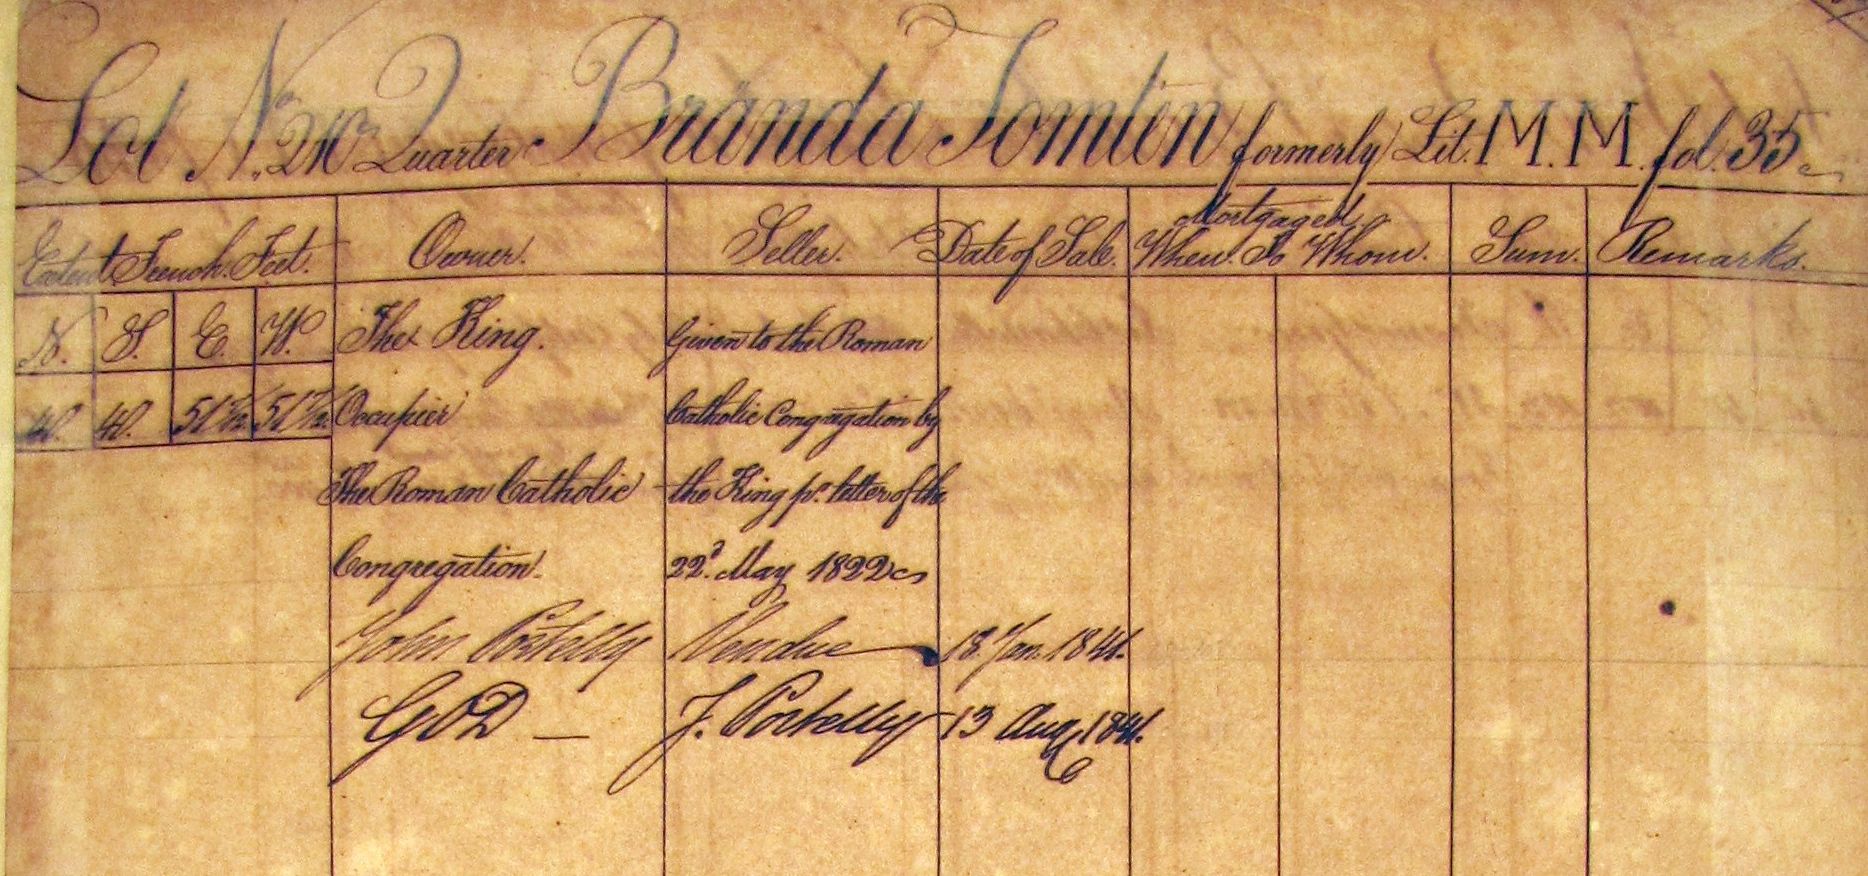 Lot No. 240 Quarter Branda Tomlin formerly Lit. M. M. fol. 35
Extent French Feet. Owner. Seller. Date of Sale. Mortgaged When. To Whom. Sum. Remarks.
N. S. E. W. The King. Given to the Roman
40. 40. 51½ 51½ Occupier Catholic Congregation by
The Roman Catholic the King pr. letter of the
Congregation. 22d. May 1822
John Postelly Vendue 13 Jan. 1841.
GOD — J. Postelly 13 Aug 1841.